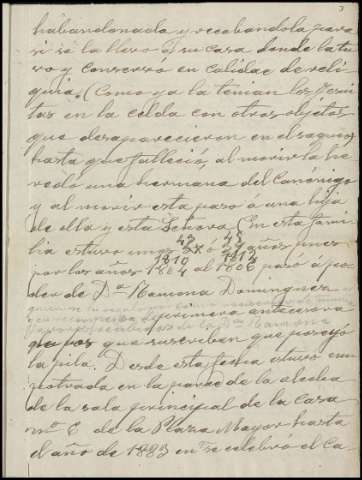 3
habandonada y recabandola para
si se la llevo a su casa donde la tu
vo y conservó en calidad de reli
quia. (Como ya la tenian los Jesui
tas en la celda con otros objetos
que desaparecieron en el saqueo)
hasta que falleció, al morir la he
redó una hermana del Canónigo
y al morir esta pasó á una hija
de ella y esta Señora (En esta fami
lia estuvo unos 43 ó 45 años pues
por los años 1810 al 1812 pasó á po
1804 1806
der de Dª Ramona Dominguez
primera antecesora
que los que suscriben que poseyó
la pila. Desde esta fecha estuvo em
potrada en la pared de la alcoba
de la sala principal de la casa
nº 6 de la Plaza Mayor hasta
el año de 1883 en qe se celebró el Ca